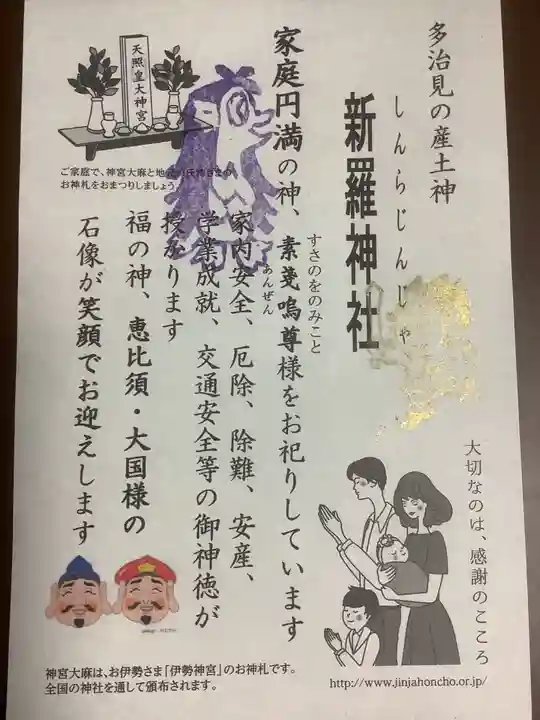 多治見の産土神
しんらじんじゃ
新羅神社
家庭円満の神、素戔嗚尊様をお祀りしています
すさのをのみこと
家内安全、厄除、除難、安産、
あんぜん
学業成就、交通安全等の御神徳が
授かります
福の神、恵比須・大国様の
石像が笑顔でお迎えします
天照皇大神宮
ご家庭で、神宮大麻と地
お神札をおまつりしましょう。
大切なのは、感謝のこころ
神宮大麻は、お伊勢さま「伊勢神宮」のお神札です。
全国の神社を通して頒布されます。
http://www.jinjahoncho.or.jp/